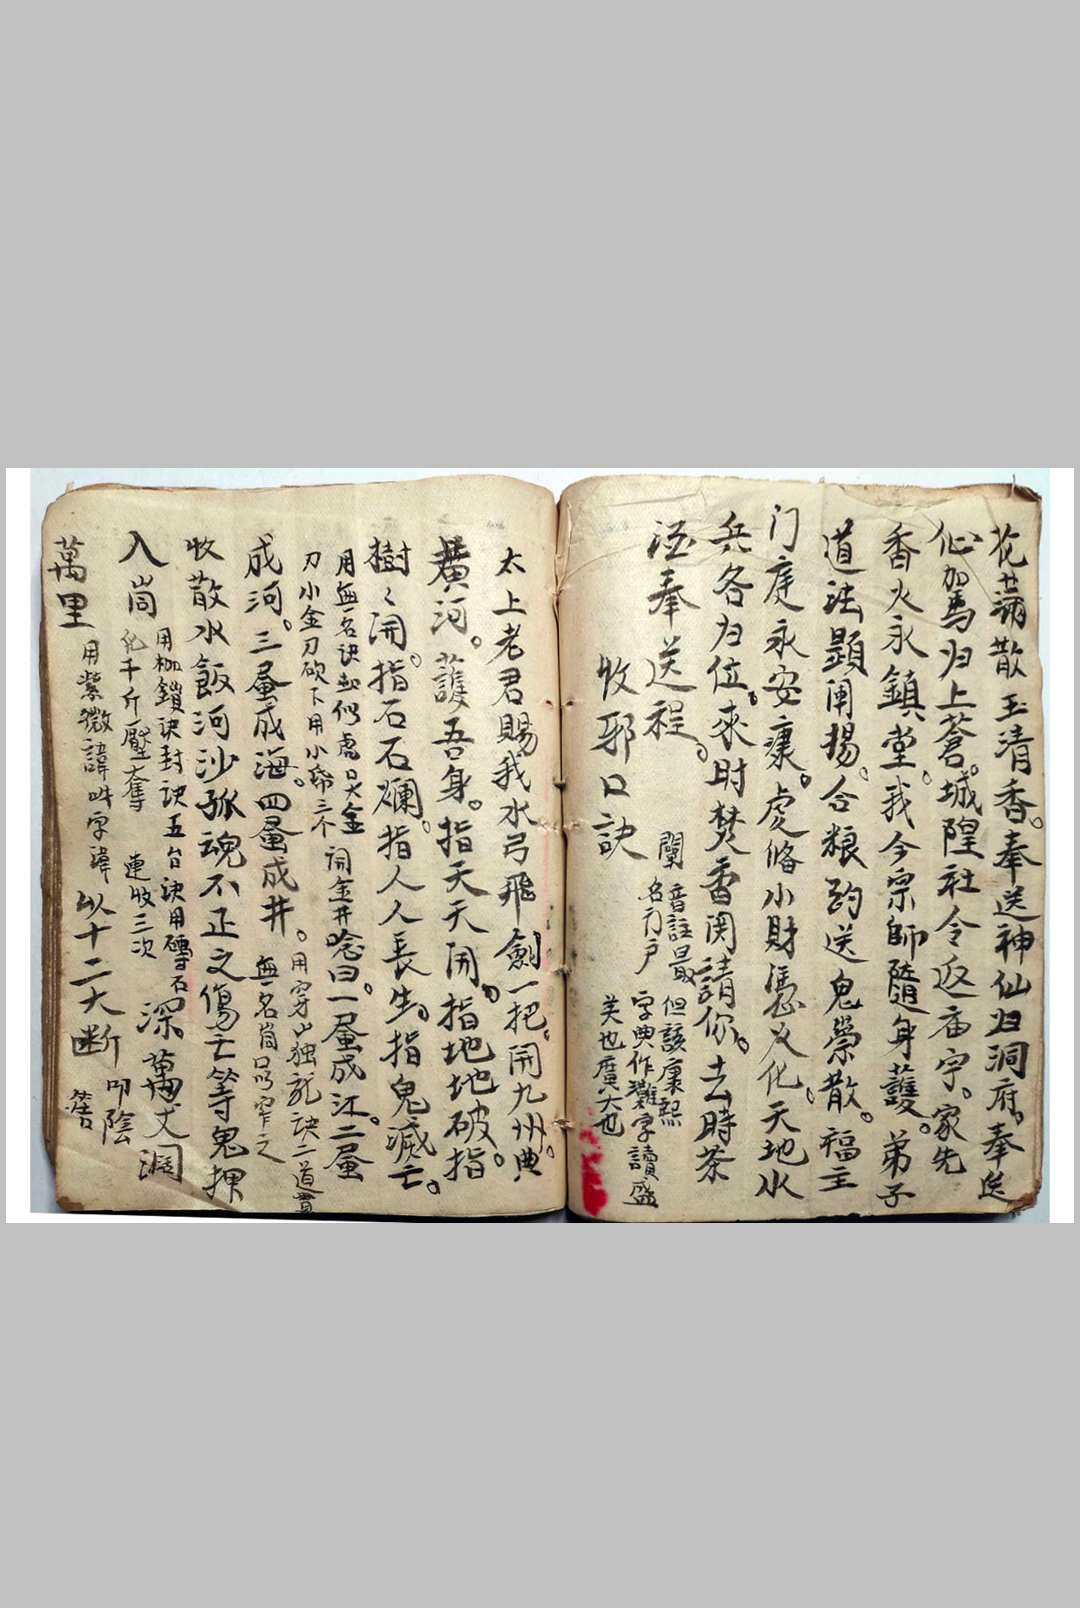 花葫散玉清香。奉送神仙归洞府。奉送
仙駕归上蒼。城隍社令返庙宇。家先
香火永鎮堂。我今宗師隨身護。弟子
道法顕阐揚。合粮 送鬼祟散。福主
门庭永安康。虔俻小財憑火化。天地水
兵各归位。來时焚香関請你。去時茶
酒奉送程。
闡 音註最 但該康熙
名门户 字典作難字讀盛
美也廣大也
收邪口訣
太上老君賜我水弓飛劍一把。開九州典
黄河。護吾身。指天天開。指地地破。指
樹〻開。指石石爛。指人人長生。指鬼滅亡。
用無名诀 金 開金井唸曰。一 成江。二
刀小金刀砍下用小 三个
成河。三 成海。四 成井。
用穿山独 诀二道
無名肖 之
收散水飯河沙孤魂不正之傷亡等鬼押
入
用枷鎖诀封诀五台诀用磚石
化千斤壓奪 連收三次
深。萬丈洞
萬里
用紫微諱 字諱
以十二大断
叩陰